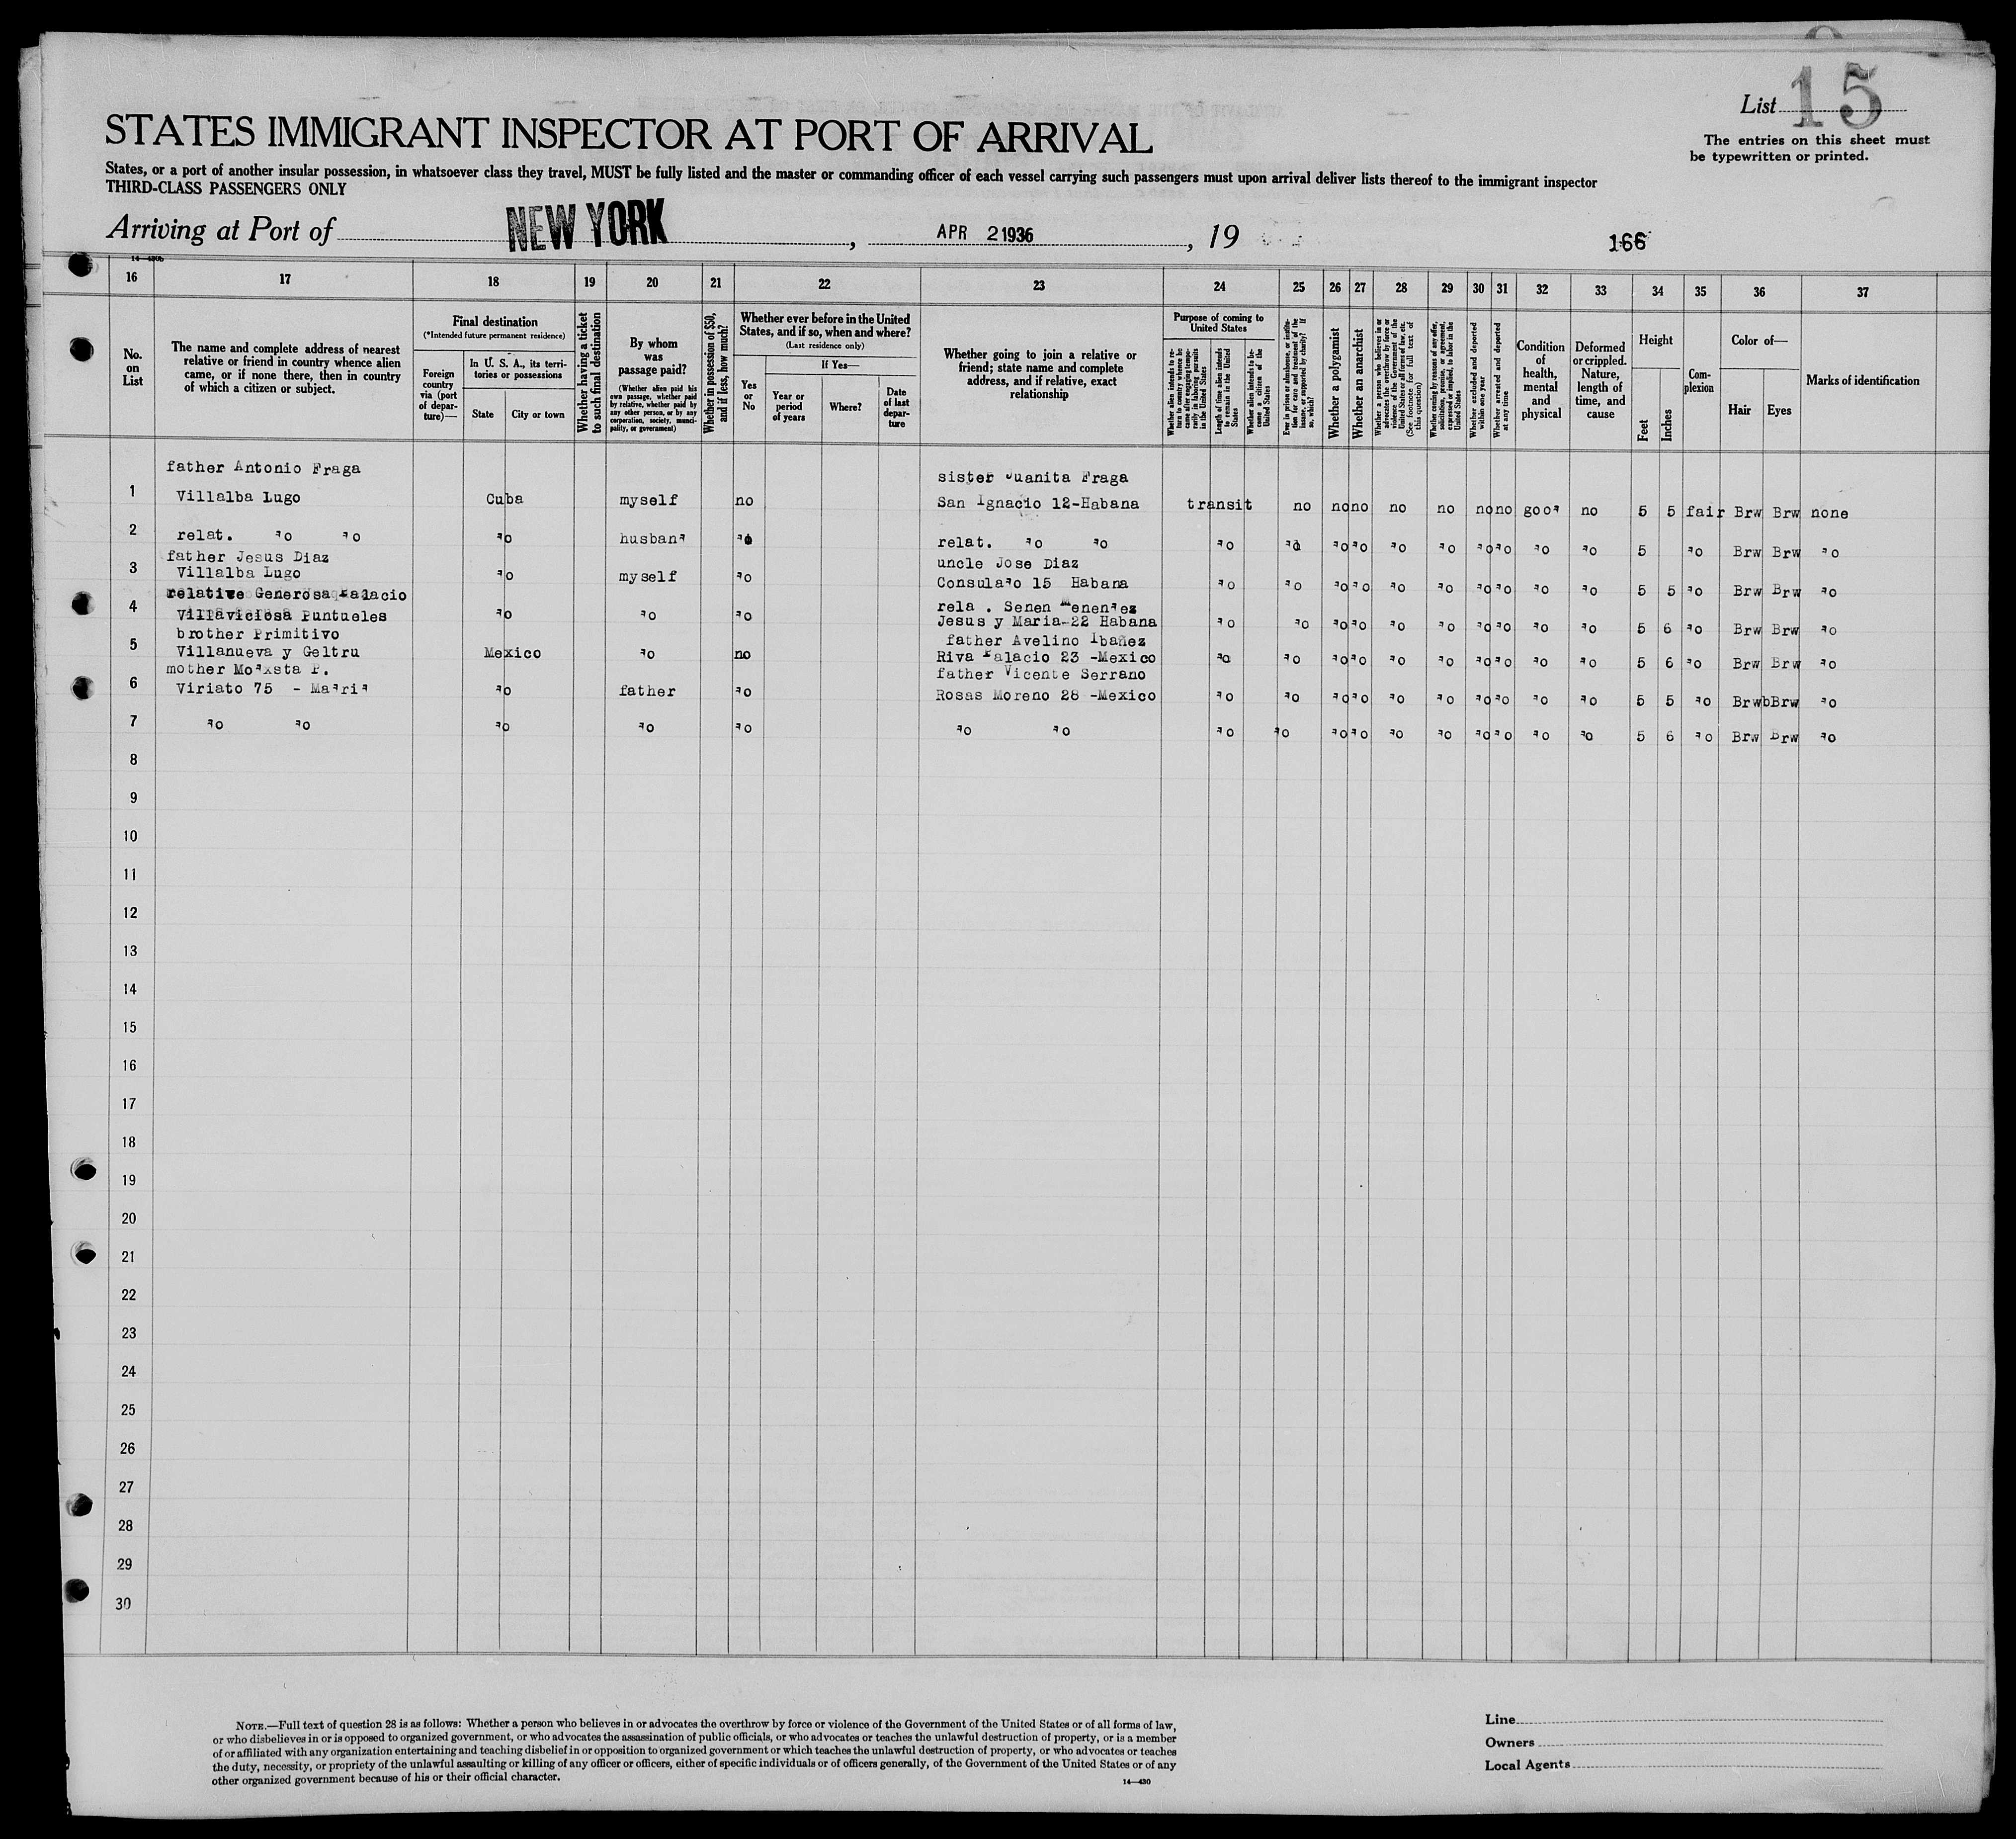 List 15
The entries on this sheet must
be typewritten or printed.
STATES IMMIGRANT INSPECTOR AT PORT OF ARRIVAL
States, or a port of another insular possession, in whatsoever class they travel, MUST be fully listed and the master or commanding officer of each vessel carrying such passengers must upon arrival deliver lists thereof to the immigrant inspector
THIRD-CLASS PASSENGERS ONLY
Arriving at Port of NEW YORK, APR 2 1936, 19
166
16 17 18 19 20 21 22 23 24 25 26 27 28 29 30 31 32 33 34 35 36 37
No. on List
The name and complete address of nearest
relative or friend in country whence alien
came, or if none there, then in country
of which a citizen or subject.
Final destination
(*Intended future permanent residence)
Foreign country via (port of departure)—
In U. S. A., its territories or possessions
State
City or town
Whether having a ticket to such final destination
By whom was passage paid?
(Whether alien paid his own passage, whether paid by relative, whether paid by any other person, or by any corporation, society, municipality, or government)
Whether in possession of $50, and if less, how much?
Whether ever before in the United States, and if so, when and where?
(Last residence only)
Yes or No
If Yes—
Year or period of years
Where?
Date of last departure
Whether going to join a relative or
friend; state name and complete
address, and if relative, exact
relationship
Purpose of coming to United States
Whether alien intends to return to country whence he came after engaging temporarily in laboring pursuits in the United States
Length of time alien intends to remain in the United States
Whether alien intends to become a citizen of the United States
Ever in prison or almshouse, or institution for care and treatment of the insane, or supported by charity? If so, which?
Whether a polygamist
Whether an anarchist
Whether a person who believes in or advocates the overthrow by force or violence of the Government of the United States or all forms of law, etc. (See footnote for full text of this question)
Whether coming by reasons of any offer, solicitation, promise, or agreement, expressed or implied, to labor in the United States
Whether excluded and deported within one year
Whether arrested and deported at any time
Condition of health, mental and physical
Deformed or crippled. Nature, length of time, and cause
Height
Feet
Inches
Complexion
Color of—
Hair
Eyes
Marks of identification
father Antonio Fraga sister Juanita Fraga
1 Villalba Lugo Cuba myself no San Ignacio 12-Habana transit no no no no no no no good no 5 5 fair Brw Brw none
2 relat. do do do husband do relat. do do do do do do do do do do do do 5 do Brw Brw do
father Jesus Diaz uncle Jose Diaz
3 Villalba Lugo do myself do Consulado 15 Habana do do do do do do do do do do 5 5 do Brw Brw do
relative Generosa Palacio rela . Senen Menendez
4 Villaviciosa Puntueles do do do Jesus y Maria-22 Habana do do do do do do do do do do 5 6 do Brw Brw do
brother Primitivo father Avelino Ibañez
5 Villanueva y Geltru Mexico do no Riva Palacio 23 -Mexico do do do do do do do do do do 5 6 do Brw Brw do
mother Modxsta P. father Vicente Serrano
6 Viriato 75 - Madrid do father do Rosas Moreno 28 -Mexico do do do do do do do do do do 5 5 do BrwbBrw do
7 do do do do do do do do do do do do do do do do do do 5 6 do Brw Brw do
8
9
10
11
12
13
14
15
16
17
18
19
20
21
22
23
24
25
26
27
28
29
30
NOTE.—Full text of question 28 is as follows: Whether a person who believes in or advocates the overthrow by force or violence of the Government of the United States or of all forms of law,
or who disbelieves in or is opposed to organized government, or who advocates the assassination of public officials, or who advocates or teaches the unlawful destruction of property, or is a member
of or affiliated with any organization entertaining and teaching disbelief in or opposition to organized government or which teaches the unlawful destruction of property, or who advocates or teaches
the duty, necessity, or propriety of the unlawful assaulting or killing of any officer or officers, either of specific individuals or of officers generally, of the Government of the United States or of any
other organized government because of his or their official character.
14—430
Line
Owners
Local Agents